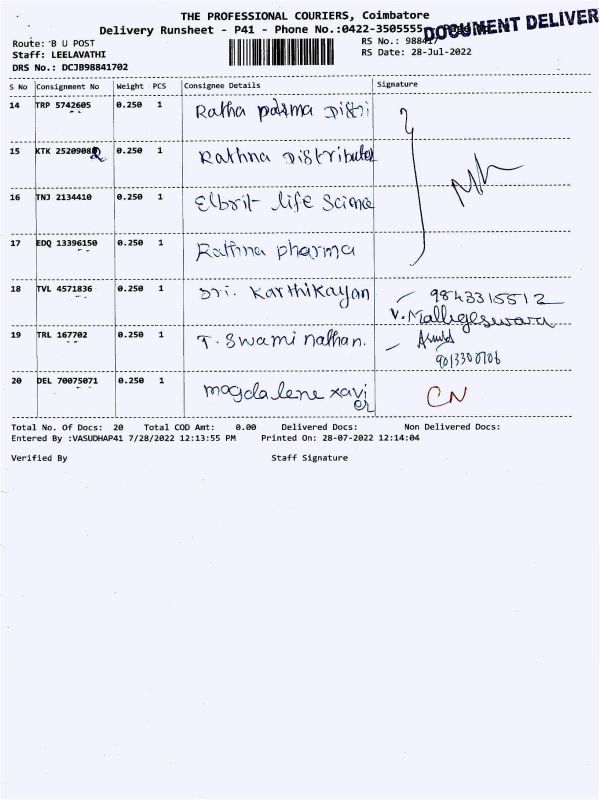 THE PROFESSIONAL COURIERS, Coimbatore
Delivery Runsheet - P41 - Phone No.:0422-3505555
DOCUMENT DELIVER
Route: B U POST
RS No.: 98841
Staff: LEELAVATHI
RS Date: 28-Jul-2022
DRS No.: DCJB98841702
S No Consignment No Weight PCS Consignee Details Signature
14 TRP 5742605 0.250 1 Ratha pharma Distri
15 KTK 25209082 0.250 1 Rathna Distributor
16 TNJ 2134410 0.250 1 Elbrit life Science
17 EDQ 13396150 0.250 1 Rathna pharma
18 TVL 4571836 0.250 1 Sri. Karthikayan 9843315512
V. Malligeswari
19 TRL 167702 0.250 1 T. Swami nathan.
20 DEL 70075071 0.250 1 magdalene xavi
er CN
Total No. Of Docs: 20 Total COD Amt: 0.00 Delivered Docs: Non Delivered Docs:
Entered By :VASUDHAP41 7/28/2022 12:13:55 PM Printed On: 28-07-2022 12:14:04
Verified By Staff Signature